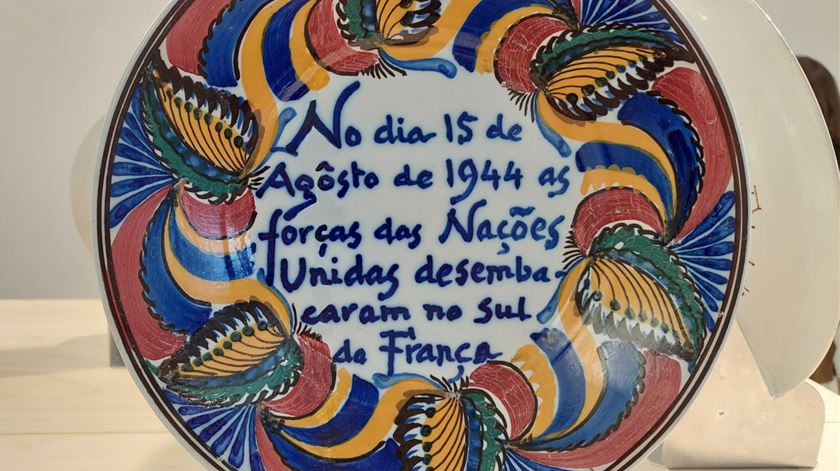 No dia 15 de
Agôsto de 1944 as
forças das Nações
Unidas desemba-
caram no sul
da França